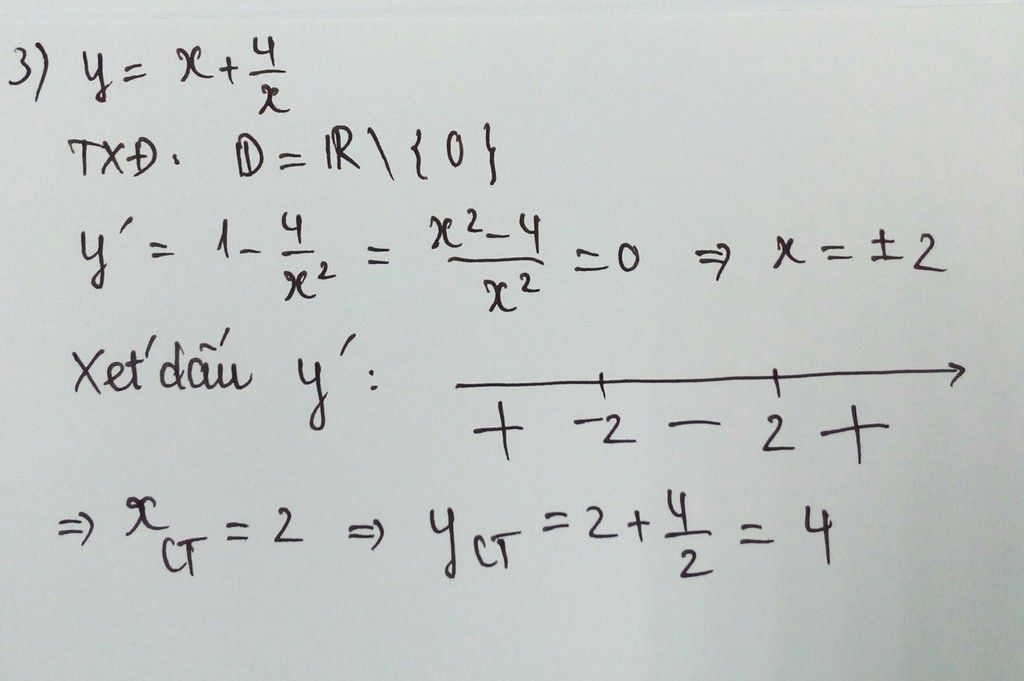 3) y = x + 4/x
TXĐ. D = ℝ \ { 0 }
y′ = 1 - 4/x² = (x² - 4)/x² = 0 ⇒ x = ± 2
Xét dấu y′ :
+ -2 - 2 +
⇒ x_CT = 2 ⇒ y_CT = 2 + 4/2 = 4